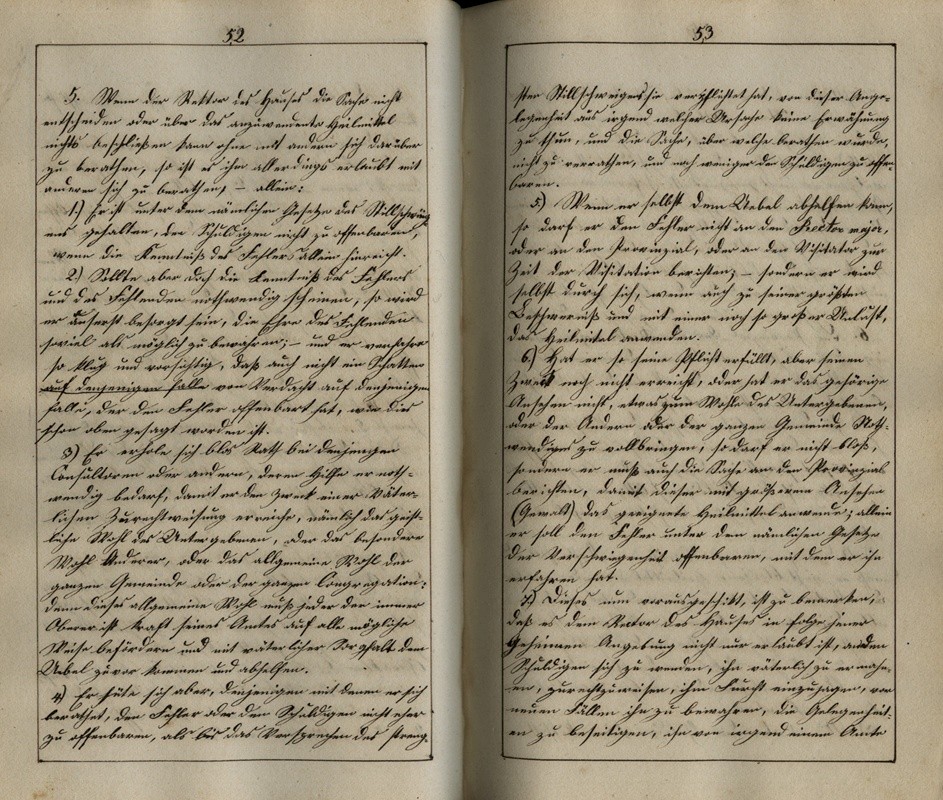 52
5. Wenn der Rektor des Hauses die Sache nicht
entscheiden oder über das anzuwendente Heilmittel
nichts beschließen kann ohne mit andern sich darüber
zu berathen, so ist es ihm allerdings erlaubt mit
anderen sich zu berathen, – allein:
1.) Er ist unter dem nämlichen Gesetze des Stillschweig
ens gehalten, den Schuldigen nicht zu offenbaren,
wenn die Kenntniß des Fehlers allein hinreicht.
2.) Sollte aber doch die Kenntniß des Fehlers
und des Fehlenden nothwendig scheinen, so wird
er äuserst besorgt sein, die Ehre des Fehlenden
soviel als möglich zu bewahren; – und er verfahre
so klug und vorsichtig, daß auch nicht ein Schatten
auf denjenigen falle von Verdacht auf denjenigen
falle, der den Fehler offenbart hat, wie dies
schon oben gesagt worden ist.
3) Er erhole sich blos Rath bei denjenigen
Consultoren oder andern, deren Hilfe er noth-
wendig bedarf, damit er den Zweck einer Väter-
lichen Zurechtweisung erreiche, nämlich das geist-
liche Wohl des Untergebenen, oder das besondere
Wohl Anderer, oder das allgemeine Wohl der
ganzen Gemeinde oder der ganzen Congregation;
denn dieses allgemeine Wohl muß jeder der immer
Oberer ist kraft seines Amtes auf alle mögliche
Weise befördern und mit väterlicher Sorgfalt dem
Uebel zuvor kommen und abhelfen.
4) Er hüte sich aber, denjenigen mit denen er sich
berathet, den Fehler oder den Schuldigen nicht eher
zu offenbaren, als bis das Versprechen des streng-
53
sten Stillschweigens sie verpflichtet hat, von dieser Ange-
legenheit aus irgend welcher Ursache keine Erwähnung
zu thun, und die Sache, über welche berathen wurde,
nicht zu verrathen, und noch weniger den Schuldigen zu offen-
baren.
5) Wenn er selbst dem Uebel abhelfen kann,
so darf er den Fehler nicht an den Rector major,
oder an den Provinzial, oder an den Visitator zur
Zeit der Visitation berichten; – sondern er wird
selbst durch sich, wenn auch zu seiner größten
Beschwerniß und mit einer noch so großer Unlust,
das Heilmittel anwenden.
6) Hat er so seine Pflicht erfüllt, aber seinen
Zweck noch nicht erreicht, oder hat er das gehörige
Ansehen nicht, etwas zum Wohle des Untergebenen,
oder der Andern oder der ganzen Gemeinde Noth-
wendiges zu vollbringen, so darf er nicht bloß,
sondern er muß auch die Sache an den Provinzial
berichten, damit dieser mit größerem Ansehen
(Gewalt) das geeignete Heilmittel anwende; allein
er soll den Fehler unter den nämlichen Gesetze
der Verschwiegenheit offenbaren, mit dem er ihn
erfahren hat.
7.) Dieses nun vorausgeschikt, ist zu bemerken,
daß es dem Rector des Hauses in Folge jener
Geheimen Angebung nicht nur erlaubt ist, an den
Schuldigen sich zu wenden, ihn väterlich zu ermahn-
en, zurechtzuweisen, ihm Furcht einzujagen, vor
neuen Fällen ihn zu bewahren, die Gelegenheit-
en zu beseitigen, ihn von irgend einem Amte